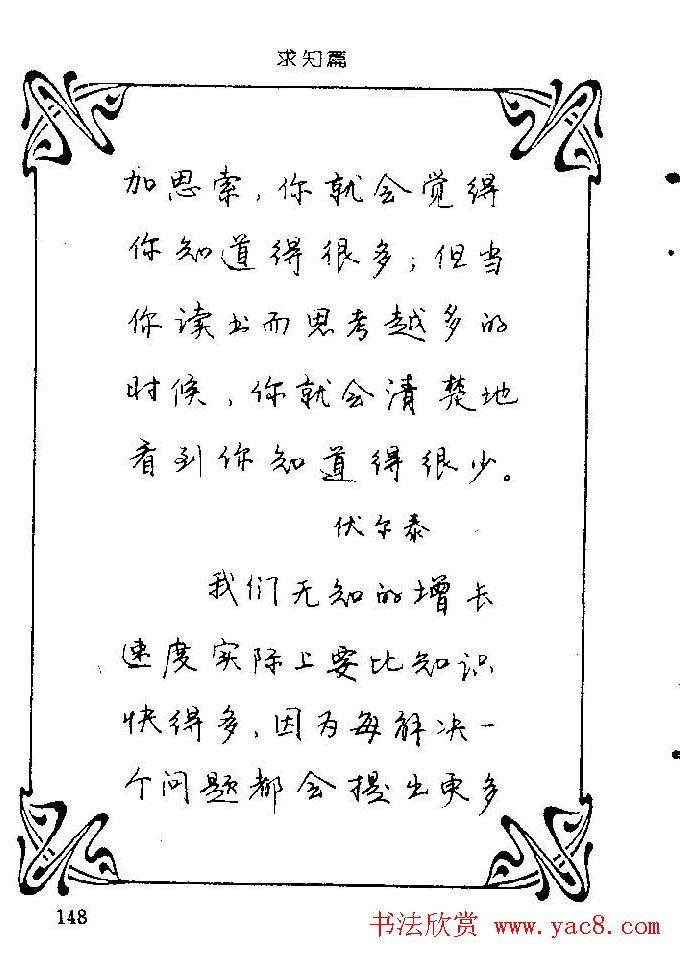 求知篇
加思索,你就会觉得
你知道得很多;但当
你读书而思考越多的
时候,你就会清楚地
看到你知道得很少。
伏尔泰
我们无知的增长
速度实际上要比知识
快得多,因为每解决一
个问题都会提出更多
148
书法欣赏 www.yac8.com